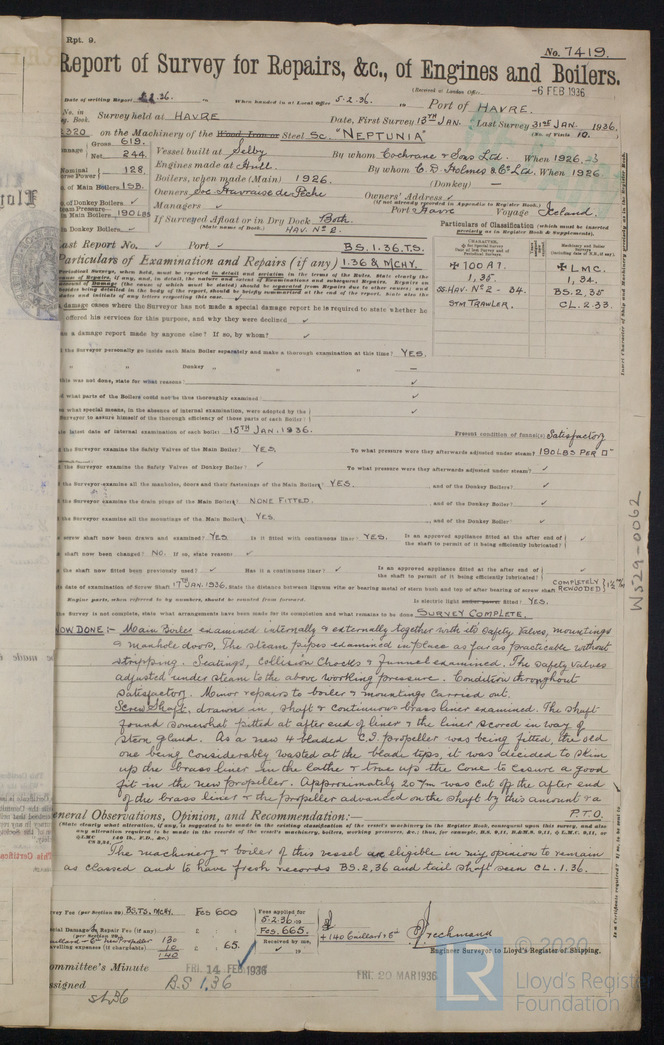 Rpt. 9.
No. 7419.
Report of Survey for Repairs, &c., of Engines and Boilers.
(Received at London Office -6 FEB 1936
Date of writing Report 5.2.36. When handed in at Local Office 5.2.36. 19 Port of HAVRE.
No. in Survey held at HAVRE Date, First Survey 13TH JAN. Last Survey 31ST JAN. 1936
Book. (No. of Visits 10.
on the Machinery of the Wood, Iron or Steel Sc. "NEPTUNIA"
Tonnage Gross 619. Net 244.
Vessel built at Selby By whom Cochrane & Sons Ltd. When 1926
Engines made at Hull. By whom C. D. Holmes & Co Ltd. When 1926
Nominal Horse Power 128.
Boilers, when made (Main) 1926. (Donkey) —
No. of Main Boilers 1SB.
Owners Soc Havraise de Pêche Owners' Address ✓
(if not already recorded in Appendix to Register Book.)
No. of Donkey Boilers ✓ Managers ✓ Port Havre Voyage Iceland.
Steam Pressure in Main Boilers 190 LBS
If Surveyed Afloat or in Dry Dock Both
(State name of Dock.) HAV. No 2.
in Donkey Boilers ✓
Last Report No. ✓ Port ✓ BS.1.36.T.S.
Particulars of Examination and Repairs (if any) 1.36 & MCHY.
Particulars of Classification (which must be inserted precisely as in Register Book & Supplements).
✠ 100 A1 ✠ LMC.
1,35. 1,34.
SS. HAV. No 2 - 34. BS. 2,35
STM TRAWLER. CL. 2.33.
damage cases where the Surveyor has not made a special damage report he is required to state whether he
offered his services for this purpose, and why they were declined ✓
as a damage report made by anyone else? If so, by whom? ✓
the Surveyor personally go inside each Main Boiler separately and make a thorough examination at this time? YES.
" " Donkey " " " —
this was not done, state for what reasons ✓
what parts of the Boilers could not be thus thoroughly examined ✓
what special means, in the absence of internal examination, were adopted by the
Surveyor to assure himself of the thorough efficiency of those parts of each Boiler? ✓
latest date of internal examination of each boiler 15TH JAN. 1936. Present condition of funnel(s) Satisfactory
the Surveyor examine the Safety Valves of the Main Boiler? YES. To what pressure were they afterwards adjusted under steam? 190 LBS PER □"
the Surveyor examine the Safety Valves of Donkey Boiler? ✓ To what pressure were they afterwards adjusted under steam? ✓
the Surveyor examine all the manholes, doors and their fastenings of the Main Boiler? YES. , and of the Donkey Boiler? ✓
the Surveyor examine the drain plugs of the Main Boiler? NONE FITTED. , and of the Donkey Boiler? ✓
the Surveyor examine all the mountings of the Main Boiler? YES. , and of the Donkey Boiler? ✓
screw shaft now been drawn and examined? YES. Is it fitted with continuous liner? YES. Is an approved appliance fitted at the after end of the shaft to permit of it being efficiently lubricated? ✓
shaft now been changed? NO. If so, state reasons ✓
the shaft now fitted been previously used? ✓ Has it a continuous liner? ✓ Is an approved appliance fitted at the after end of the shaft to permit of it being efficiently lubricated? ✓
date of examination of Screw Shaft 17TH JAN. 1936. State the distance between lignum vitæ or bearing metal of stern bush and top of after bearing of screw shaft COMPLETELY REWOODED
Engine parts, when referred to by numbers, should be counted from forward. Is electric light fitted? YES.
the Survey is not complete, state what arrangements have been made for its completion and what remains to be done SURVEY COMPLETE.
NOW DONE :- Main Boiler examined internally & externally together with its safety valves, mountings
& manhole doors. The steam pipes examined in place as far as practicable without
stripping. Seatings, Collision Chocks & funnel examined. The safety valves
adjusted under steam to the above working pressure. Condition throughout
satisfactory. Minor repairs to boiler & mountings carried out.
Screw Shaft. drawn in, shaft & continuous brass liner examined. The shaft
found somewhat pitted at after end of liner & the liner scored in way of
stern gland. As a new 4 bladed C.I propeller was being fitted, the old
one being considerably wasted at the blade tips, it was decided to skim
up the brass liner in the lathe & true up the cone to ensure a good
fit in the new propeller. Approximately 20 7/m was cut off the after end
of the brass liner & the propeller advanced on the shaft by this amount & a
P.T.O.
General Observations, Opinion, and Recommendation:—
(State clearly what alteration, if any, is suggested to be made in the existing classification of the vessel's machinery in the Register Book, consequent upon this survey, and also
The machinery & boiler of this vessel are eligible in my opinion to remain
as classed and to have fresh records BS. 2,36 and tail shaft seen CL. 1.36.
Survey Fee (per Section 29) BS.TS. MCHY. Fcs 600
Special Damage or Repair Fee (if any) (per Section 29.)
New Propeller 130
Travelling expenses (if chargeable) 10 65.
140
Fees applied for 5.2.36 19
Fcs. 665.
Received by me,
Engineer Surveyor to Lloyd's Register of Shipping.
Committee's Minute FRI. 14 FEB 1936 FRI. 20 MAR 1936
Assigned BS 1.36
W529-0062
© 2020
LR
Lloyd's Register
Foundation